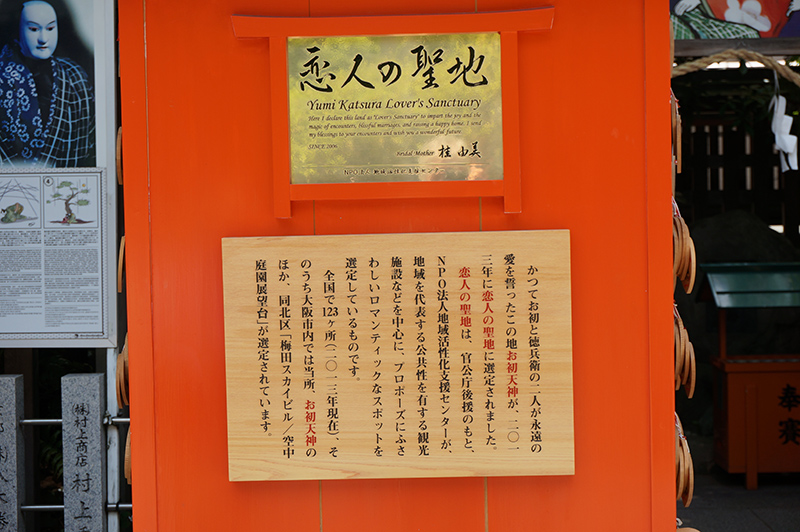 恋人の聖地
Yumi Katsura Lover's Sanctuary
Here I declare this land as 'Lover's Sanctuary' to impart the joy and the
magic of encounters, blissful marriages, and raising a happy home. I send
my blessings to your encounters and wish you a wonderful future.
SINCE 2006
Bridal Mother 桂 由美
NPO法人 地域活性化支援センター
かつてお初と徳兵衛の二人が永遠の
愛を誓ったこの地お初天神が、二〇一
三年に恋人の聖地に選定されました。
恋人の聖地は、官公庁後援のもと、
NPO法人地域活性化支援センターが、
地域を代表する公共性を有する観光
施設などを中心に、プロポーズにふさ
わしいロマンティックなスポットを
選定しているものです。
全国で123ヶ所(二〇一三年現在)、そ
のうち大阪市内では当所、お初天神の
ほか、同北区「梅田スカイビル/空中
庭園展望台」が選定されています。
4
(株)村上商店
村上
奉賽